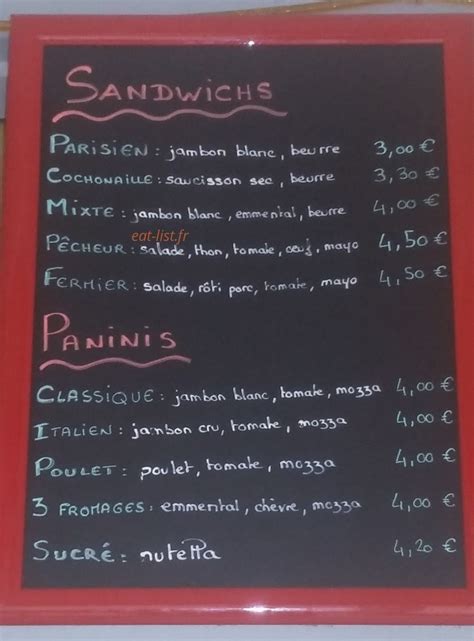 SANDWICHS
PARISIEN : jambon blanc, beurre 3,00 €
COCHONAILLE : saucisson sec, beurre 3,30 €
MIXTE : jambon blanc, emmental, beurre 4,00 €
eat-list.fr
PÊCHEUR : salade, thon, tomate, oeuf, mayo 4,50 €
FERMIER : salade, rôti porc, tomate, mayo 4,50 €
PANINIS
CLASSIQUE : jambon blanc, tomate, mozza 4,00 €
ITALIEN : jambon cru, tomate, mozza 4,00 €
POULET : poulet, tomate, mozza 4,00 €
3 FROMAGES : emmental, chèvre, mozza 4,00 €
SUCRÉ : nutella 4,20 €